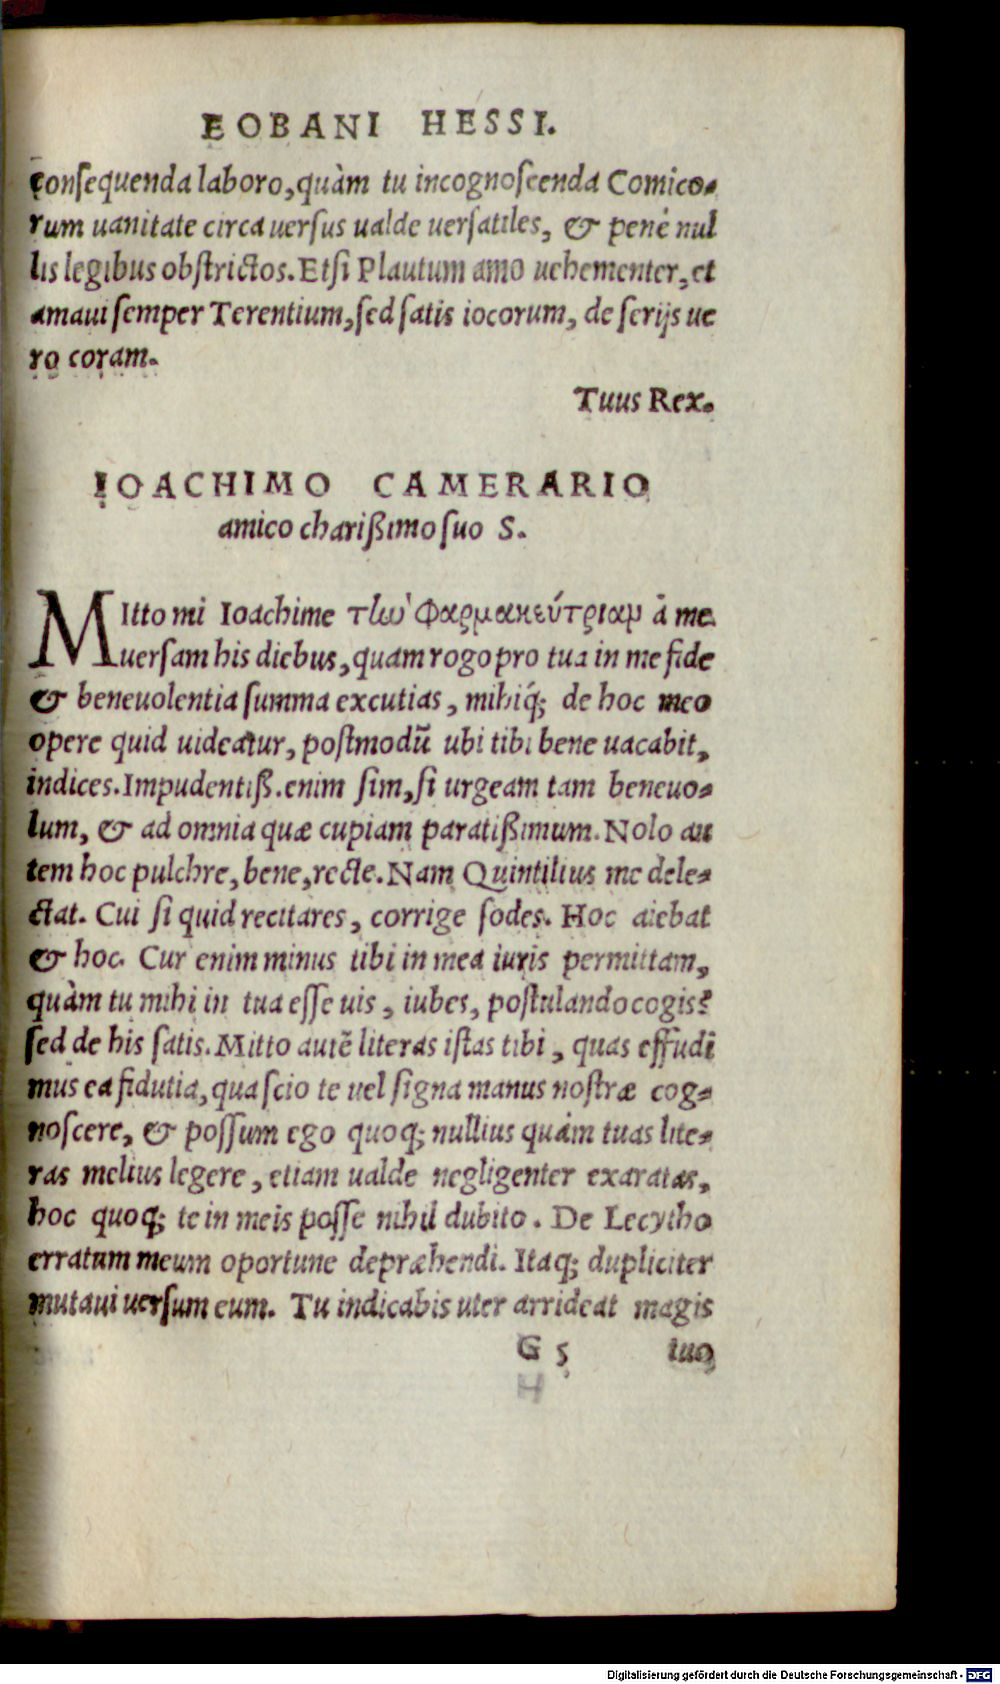 EOBANI HESSI.
conſequenda laboro, quàm tu incognoſcenda Comico-
rum uanitate circa uerſus ualde uerſatiles, & penè nul
lis legibus obſtrictos. Etſi Plautum amo uehementer, et
amaui ſemper Terentium, ſed ſatis iocorum, de ſerijs ue
ro coram.
Tuus Rex.
IOACHIMO CAMERARIO
amico charißimo ſuo S.
MItto mi Ioachime τὼ Φαρμακεύτριαμ à me
uerſam his diebus, quam rogo pro tua in me fide
& beneuolentia ſumma excutias, mihiq́; de hoc meo
opere quid uideatur, poſtmodũ ubi tibi bene uacabit,
indices. Impudentiß. enim ſim, ſi urgeam tam beneuo-
lum, & ad omnia quæ cupiam paratißimum. Nolo au
tem hoc pulchre, bene, recte. Nam Quintilius me dele-
ctat. Cui ſi quid recitares, corrige ſodes. Hoc aiebat
& hoc. Cur enim minus tibi in mea iuris permittam,
quàm tu mihi in tua eſſe uis, iubes, poſtulando cogis?
ſed de his ſatis. Mitto autẽ literas iſtas tibi, quas effudi
mus ea fidutia, qua ſcio te uel ſigna manus noſtræ cog-
noſcere, & poſſum ego quoq; nullius quàm tuas lite-
ras melius legere, etiam ualde negligenter exaratas,
hoc quoq; te in meis poſſe nihil dubito. De Lecytho
erratum meum oportune depræhendi. Itaq; dupliciter
mutaui uerſum eum. Tu indicabis uter arrideat magis
G 5 tuo
H
Digitalisierung gefördert durch die Deutsche Forschungsgemeinschaft - DFG